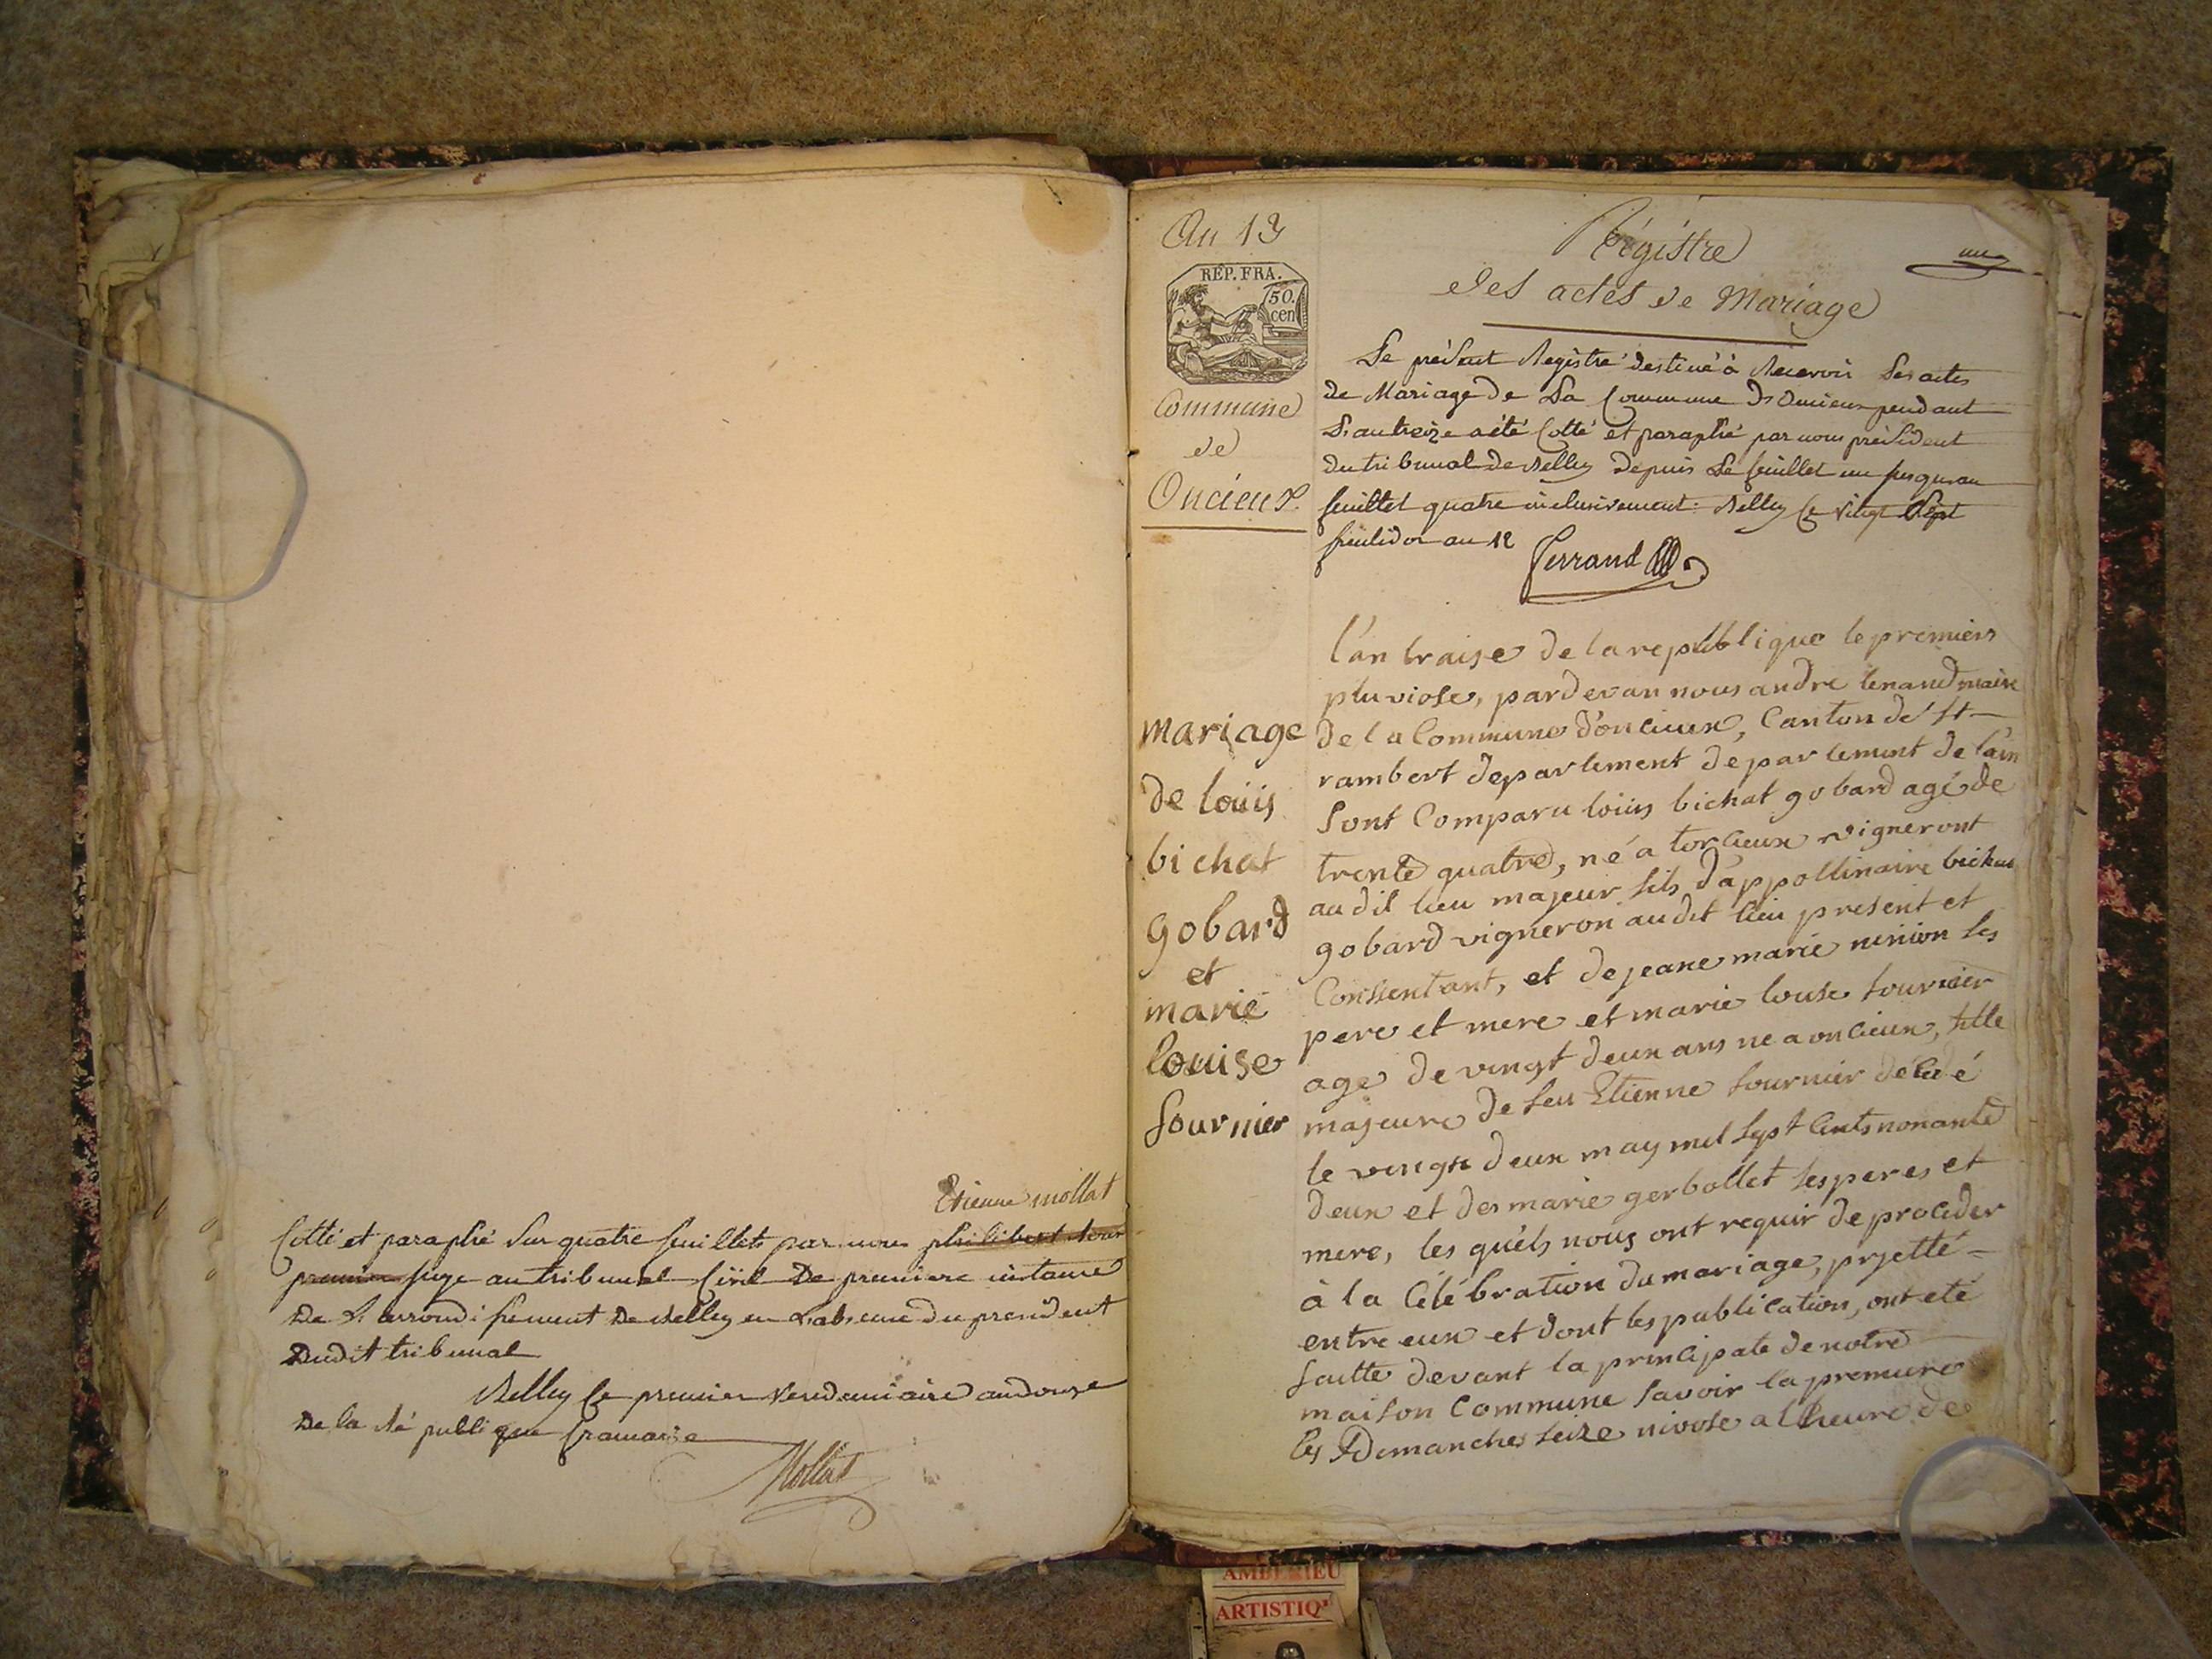 Etienne mollat
Cotté et paraphé sur quatre feuillets par nous philibert
premier juge au tribunal civil De premiere instance
De L'arrondissement De Belley en L'absence du president
Dudit tribunal
Belley le premier vendemiaire an douze
De la République francaise
Mollat
An 13
RÉP. FRA.
50.
cen
Commune
de
Oncieux.
Régistre
des actes de Mariage
une
Le présent Registre destiné à Recevoir Les actes
de Mariage de La Commune D'Oncieux pendant
L'an treize a été Cotté et paraphé par nous président
du tribunal de Belley Depuis Le feuillet un jusqu'au
feuillet quatre inclusivement. Belley Le vingt Sept
fructidor an 12
Ferrand
mariage
de loüis
bichat
gobard
et
marie
louise
fournier
l'an traise de la republique le premiers
pluviose, pardevan nous andre tenand maire
de la Commune d'oncieux, Canton de St
rambert departement departement de l'ain
sont Comparu loüis bichat gobard agé de
trente quatre, né a torcieux vigneront
au dit lieu majeur fils d'appollinaire bichat
gobard vigneron au dit lieu present et
Consentant, et de jeane marie ses
pere et mere et marie louise fournier
age de vingt deux ans ne a oncieux, fille
majeure de feu Etienne fournier décédé
le vingt deux may mil sept Cents nonante
deux et des marie gerbollet ses peres et
mere, les quéls nous ont requir de proceder
à la Célébration du mariage, prjetté
entre eux et dont les publication, ont eté
faitte devant la principale de notre
maison Commune savoir la premiere
les Dimanches seize nivose a l'heure de
AMBERIEU
ARTISTIQ